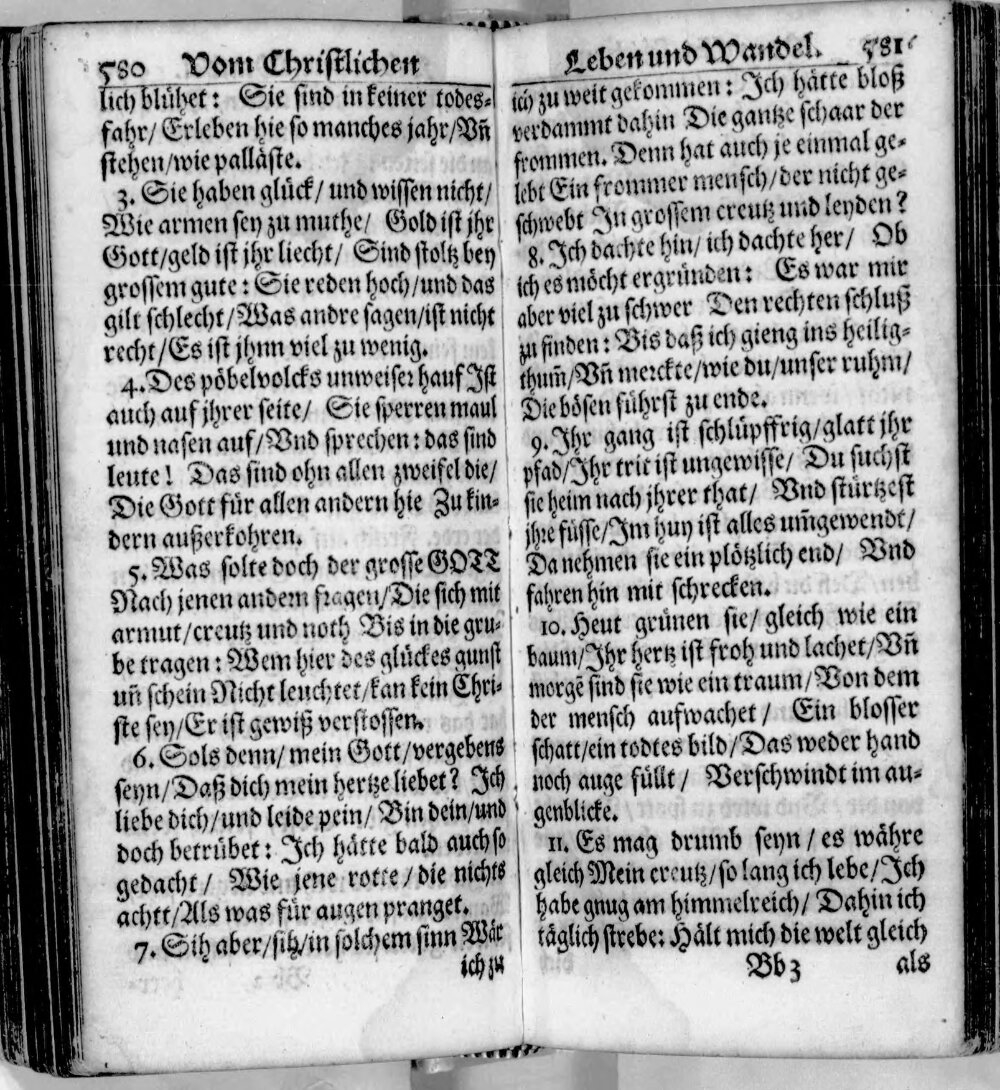 580 Vom Christlichen
lich blühet: Sie sind in keiner todes-
fahr/ Erleben hie so manches jahr/ Vñ
stehen/ wie palläste.
3. Sie haben glück/ und wissen nicht/
Wie armen sey zu muthe/ Gold ist jhr
Gott/ geld ist jhr liecht/ Sind stoltz bey
grossem gute: Sie reden hoch/ und das
gilt schlecht/ Was andre sagen/ ist nicht
recht/ Es ist jhnn viel zu wenig.
4. Des pöbelvolcks unweiser hauf Ist
auch auf jhrer seite/ Sie sperren maul
und nasen auf/ Vnd sprechen: das sind
leute! Das sind ohn allen zweifel die/
Die Gott für allen andern hie Zu kin-
dern außerkohren.
5. Was solte doch der grosse GOTT
Nach jenen andern fragen/ Die sich mit
armut/ creutz und noth Bis in die gru-
be tragen: Wem hier des glückes gunst
uñ schein Nicht leuchtet/ kan kein Chri-
ste sey/ Er ist gewiß verstossen.
6. Sols denn/ mein Gott/ vergebens
seyn/ Daß dich mein hertze liebet? Ich
liebe dich/ und leide pein/ Bin dein/ und
doch betrübet: Ich hätte bald auch so
gedacht/ Wie jene rotte/ die nichts
achtt/ Als was für augen pranget.
7. Sih aber/ sih/ in solchem sinn Wär
ich zu
Leben und Wandel. 581
ich zu weit gekommen: Ich hätte bloß
verdammt dahin Die gantze schaar der
frommen. Denn hat auch je einmal ge-
lebt Ein frommer mensch/ der nicht ge-
schwebt In grossem creutz und leyden?
8. Ich dachte hin/ ich dachte her/ Ob
ich es möcht ergründen: Es war mir
aber viel zu schwer Den rechten schluß
zu finden: Bis daß ich gieng ins heilig-
thum̃/ Vñ merckte/ wie du/ unser ruhm/
Die bösen führst zu ende.
9. Ihr gang ist schlüpffrig/ glatt jhr
pfad/ Ihr trit ist ungewisse/ Du suchst
sie heim nach jhrer that/ Vnd stürtzest
jhre füsse/ Im huy ist alles um̃gewendt/
Da nehmen sie ein plötzlich end/ Vnd
fahren hin mit schrecken.
10. Heut grünen sie/ gleich wie ein
baum/ Ihr hertz ist froh und lachet/ Vñ
morgẽ sind sie wie ein traum/ Von dem
der mensch aufwachet/ Ein blosser
schatt/ ein todtes bild/ Das weder hand
noch auge füllt/ Verschwindt im au-
genblicke.
11. Es mag drumb seyn/ es währe
gleich Mein creutz/ so lang ich lebe/ Ich
habe gnug am himmelreich/ Dahin ich
täglich strebe: Hält mich die welt gleich
Bb 3 als